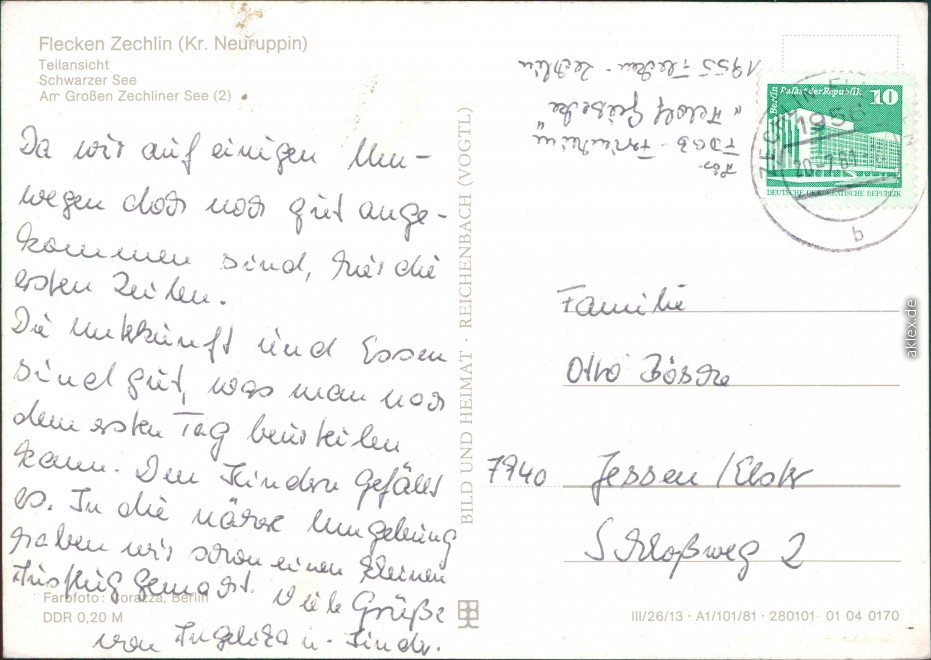 Flecken Zechlin (Kr. Neuruppin)
Teilansicht
Schwarzer See
Am Großen Zechliner See (2)
Da wir auf einigen Um-
wegen doch noch gut ange-
kommen sind, hier die
ersten Zeilen.
Die Unterkunft und Essen
sind gut, was man nach
dem ersten Tag beurteilen
kann. Den Kindern gefällt
es. In die nähere Umgebung
haben wir schon einen kleinen
Ausflug gemacht. Viele Grüße
von Angelika u. Kinder.
Farbfoto: Corazza, Berlin
DDR 0,20 M
BILD UND HEIMAT · REICHENBACH (VOGTL)
FDGB-
"Adolf
1955 Flecken-Zechlin
Berlin Palast der Republik 10
DEUTSCHE DEMOKRATISCHE REPUBLIK
1956
b
Familie
Otto Bösche
7940 Jessen/Elster
Schloßweg 2
III/26/13 · A1/101/81 · 280101 01 04 0170
aklex.de